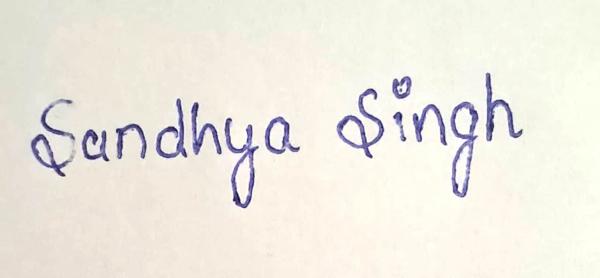 Sandhya Singh